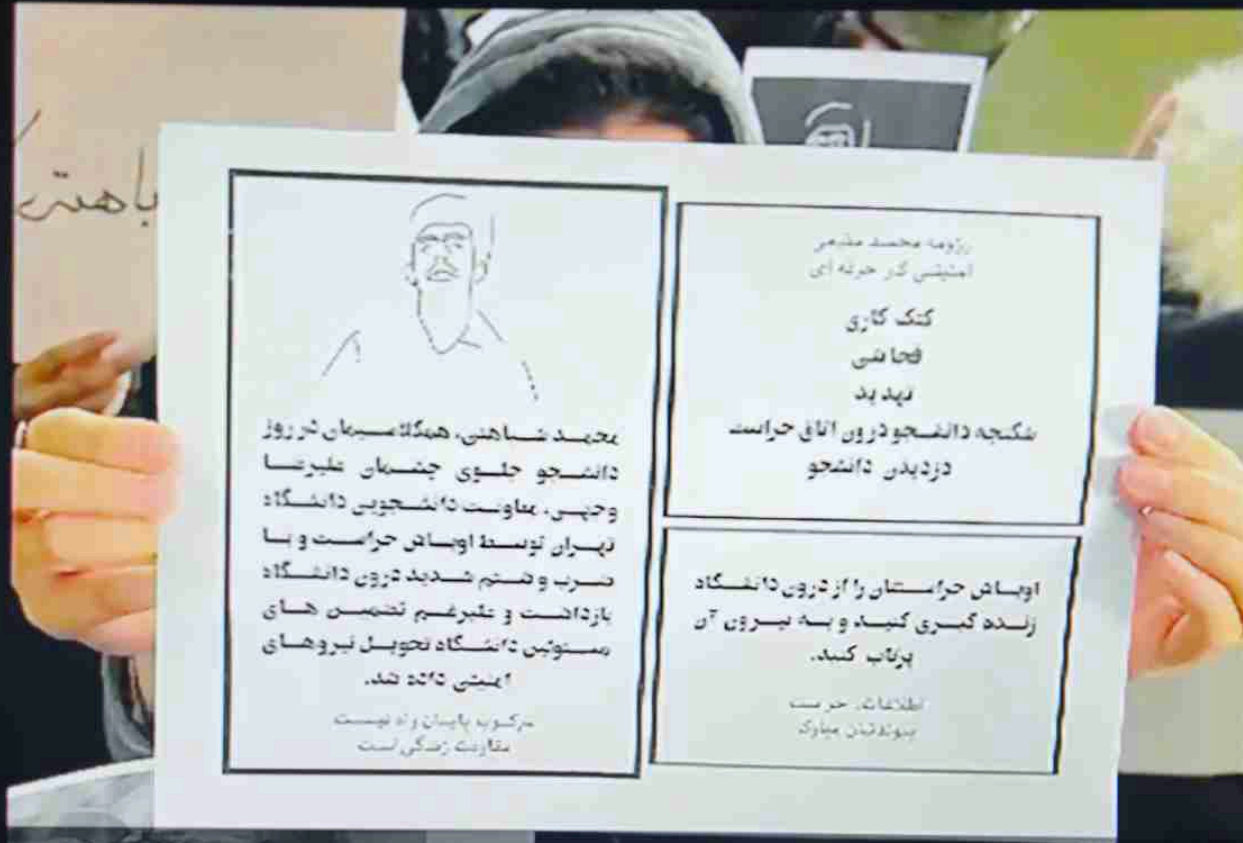 باهتی
رزومه محمد مقیمی
امنیتی کار حرفه ای
کتک کاری
فحاشی
تهدید
شکنجه دانشجو درون اتاق حراست
دزدیدن دانشجو
اوباش حراستتان را از درون دانشگاه
زنده گیری کنید و به بیرون آن
پرتاب کنید.
اطلاعات، حراست
پیوندتان مبارک
محمد شباهتی، همکلاسیمان در روز
دانشجو جلوی چشمان علیرضا
وجهی، معاونت دانشجویی دانشگاه
تهران توسط اوباش حراست و با
ضرب و شتم شدید درون دانشگاه
بازداشت و علیرغم تضمین های
مسئولین دانشگاه تحویل نیروهای
امنیتی داده شد.
سرکوب پایان راه نیست
مقاومت زندگی است